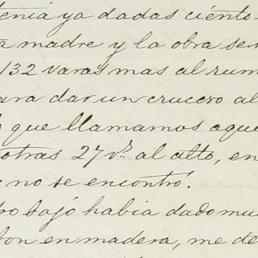 tenia ya dadas ciento
madre y la obra se
132 varas mas al rum
para dar un crucero al
que llamamos aque
otras 27 vs. al alto, en
no se encontró.
bajó habia dado mu
en madera, me de